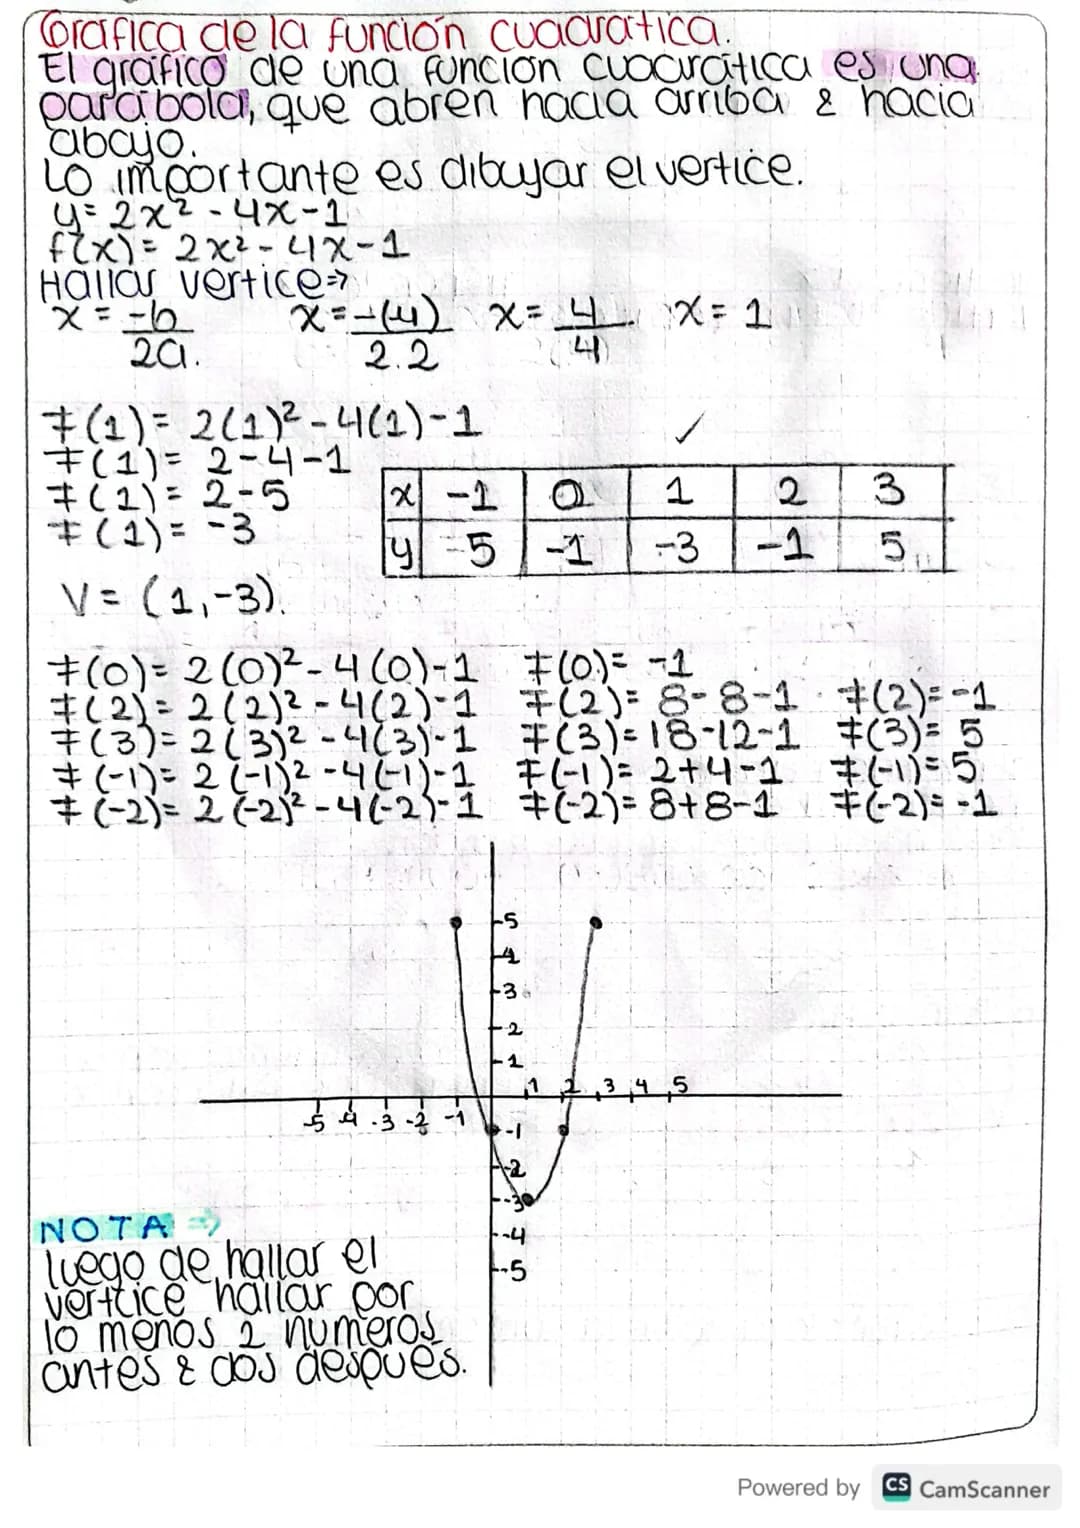 Gráfica de la función cuadrática.
El gráfico de una función cuadrática es una
parábola, que abren hacia arriba & hacia
abajo.
Lo importante es dibujar el vertice.
y= 2x² - 4x-1
f(x)= 2x² - 4x-1
Hallar vertice⇒
x = -b/2a. x = -(4)/2.2 x= 4/4 x= 1
f(1)= 2(1)² - 4(1)-1 ✓
f(1)= 2-4-1
f(1)= 2-5
f(1)= -3
x -1 0 1 2 3
y -5 -1 -3 -1 5
V= (1,-3).
f(0)= 2(0)² - 4(0)-1 f(0)= -1
f(2)= 2(2)² - 4(2)-1 f(2)= 8-8-1 f(2)= -1
f(3)= 2(3)² - 4(3)-1 f(3)= 18-12-1 f(3)= 5
f(-1)= 2(-1)² - 4(-1)-1 f(-1)= 2+4-1 f(-1)= 5
f(-2)= 2(-2)² - 4(-2)-1 f(-2)= 8+8-1 f(-2)= -1
5
4
3
2
1
1 2 3 4 5
-5 -4 -3 -2 -1
-1
-2
-3
-4
-5
NOTA ⇒
luego de hallar el
vertice hallar por
lo menos 2 numeros
antes & dos después.
Powered by CS CamScanner